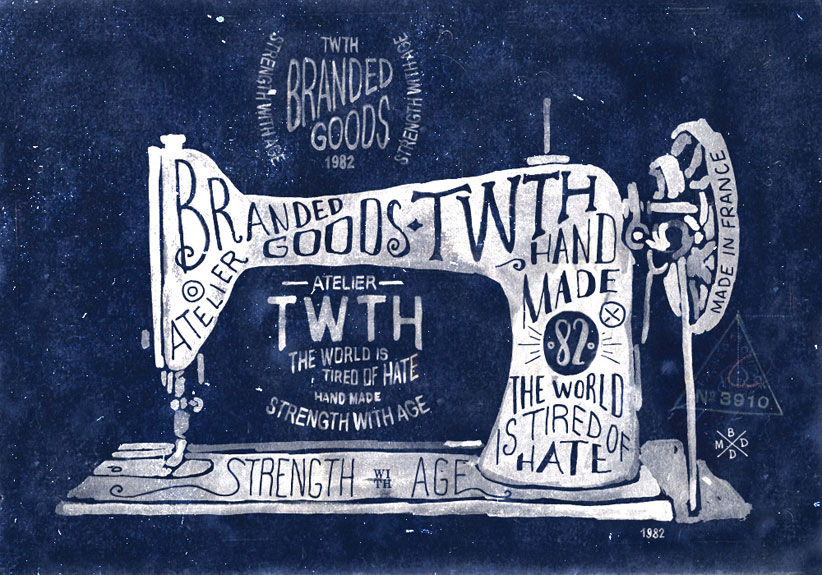 TWTH
BRANDED
GOODS
1982
STRENGTH WITH AGE
STRENGTH WITH AGE
BRANDED
GOODS
TWTH
ATELIER
HAND
MADE
82
THE WORLD
IS TIRED OF
HATE
MADE IN FRANCE
ATELIER
TWTH
THE WORLD IS
TIRED OF HATE
HAND MADE
STRENGTH WITH AGE
STRENGTH WITH AGE
Nº 3910.
B
M D
D
1982